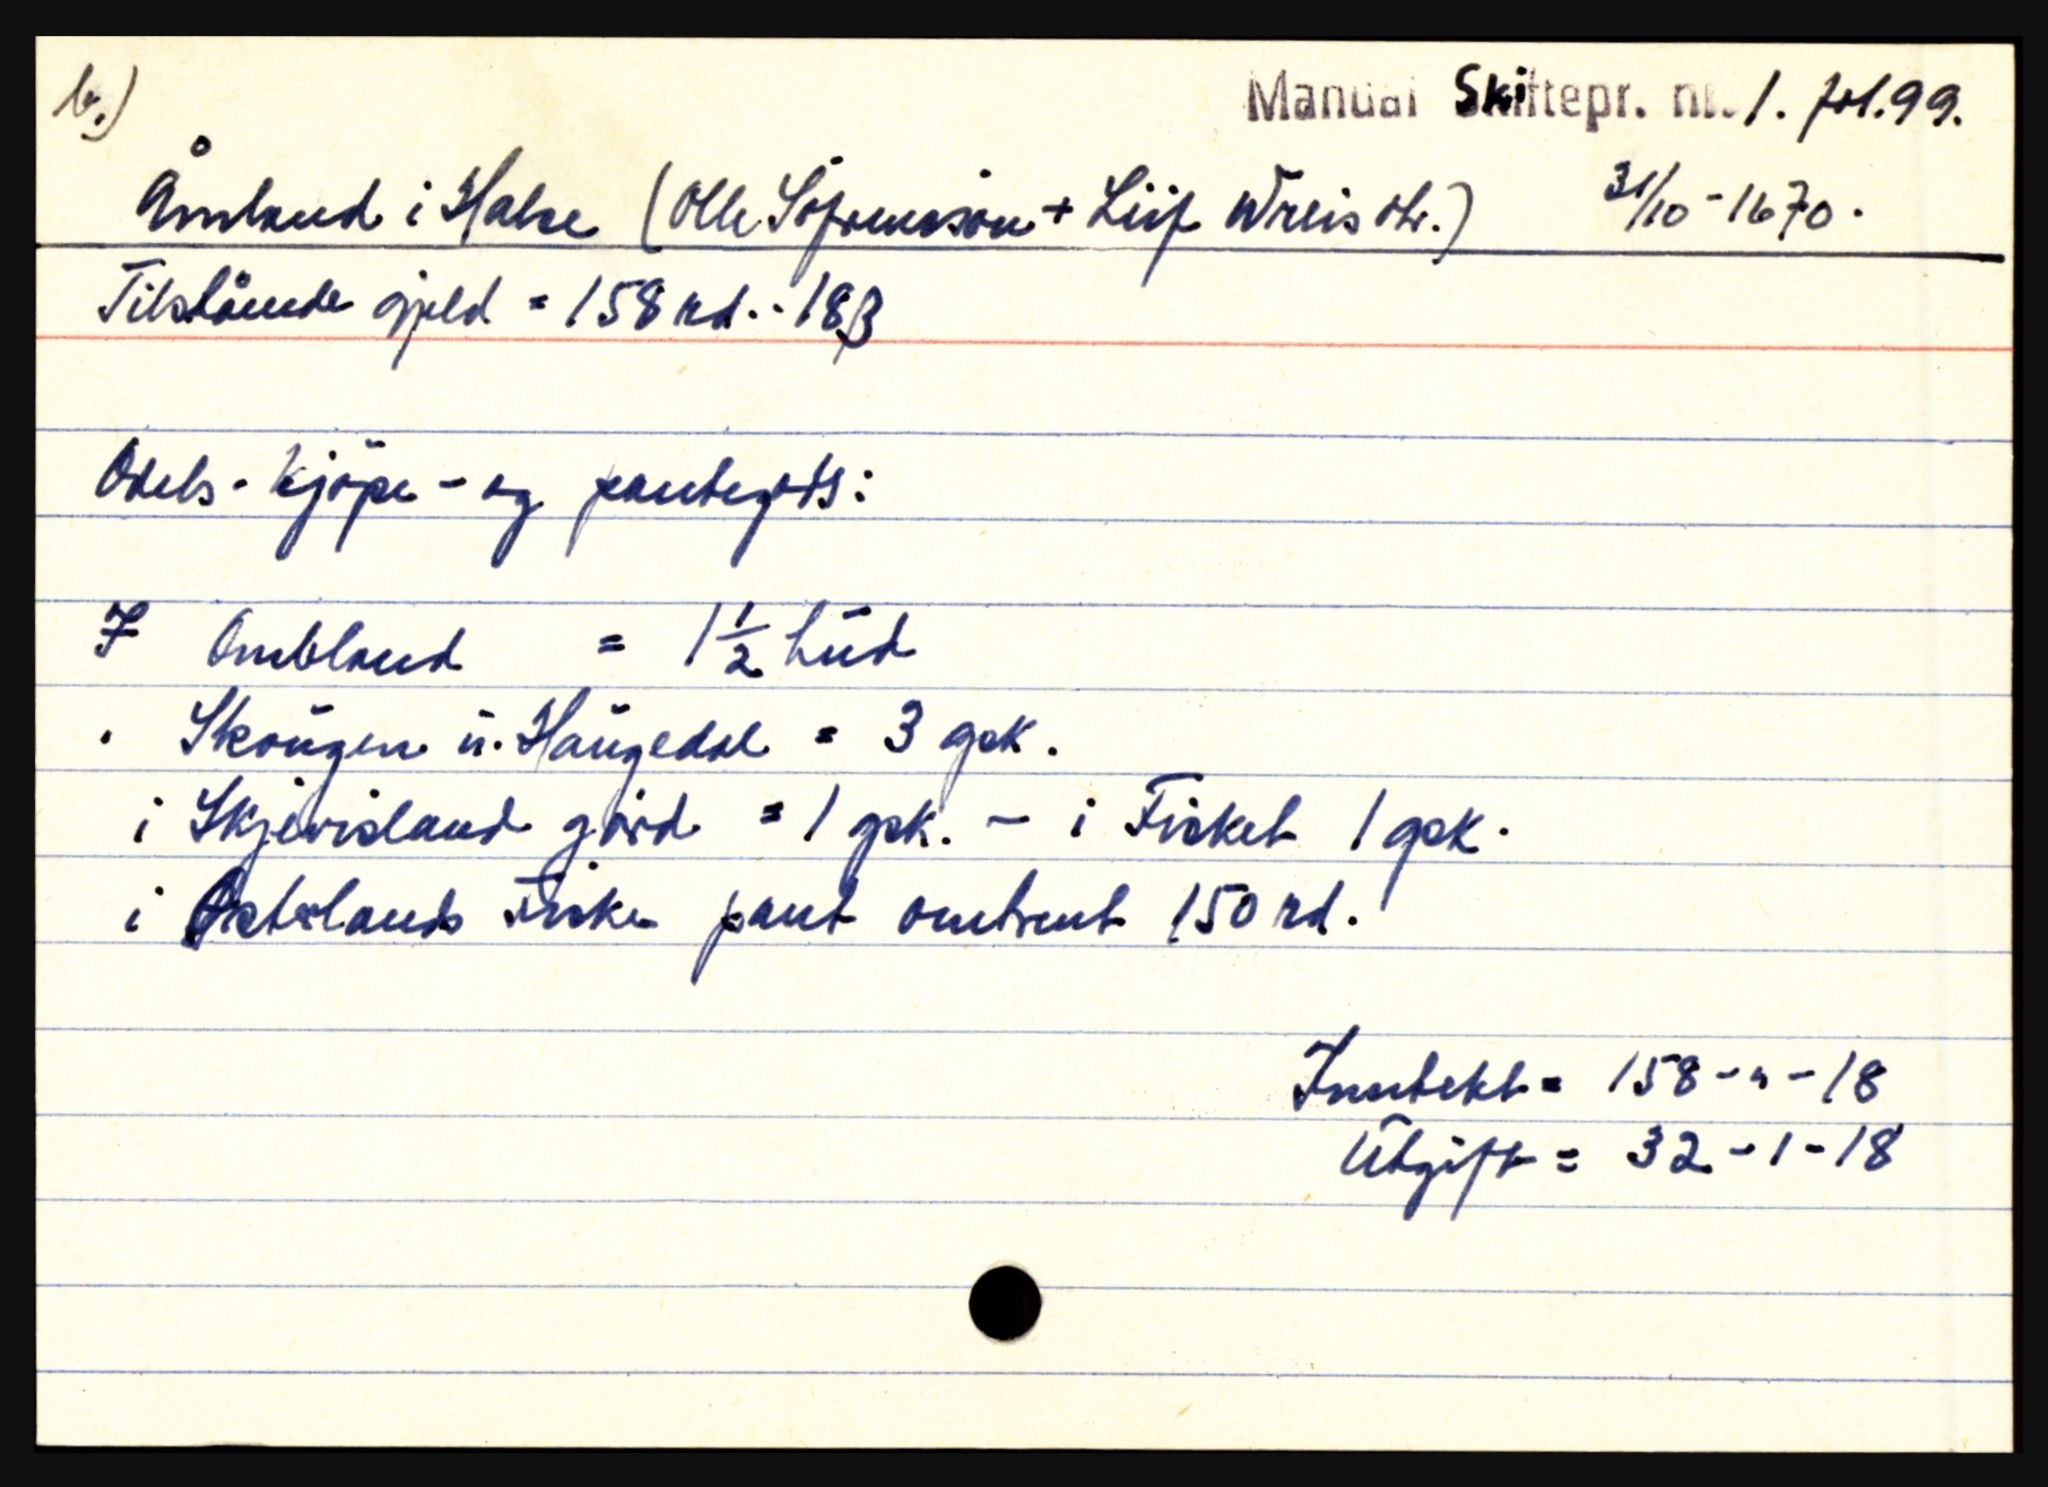 b.)
Manual Skiftepr. nr. 1. fol. 99.
Åmland i Halse (Olle Søfrensøn + Liif Wreis dtr.) 31/10 - 1670.
Tilstående gjeld = 158 rd. - 18 β
Odels - kjøpe - og pantegods:
I Ombland = 1 1/2 hud
" Skougen u. Haugedal = 3 gsk.
i Skjevisland gård = 1 gsk. - i Fisket 1 gsk.
i Østerlands Fiske pant omtrent 150 rd.
Inntekt = 158 - " - 18
Utgift = 32 - 1 - 18